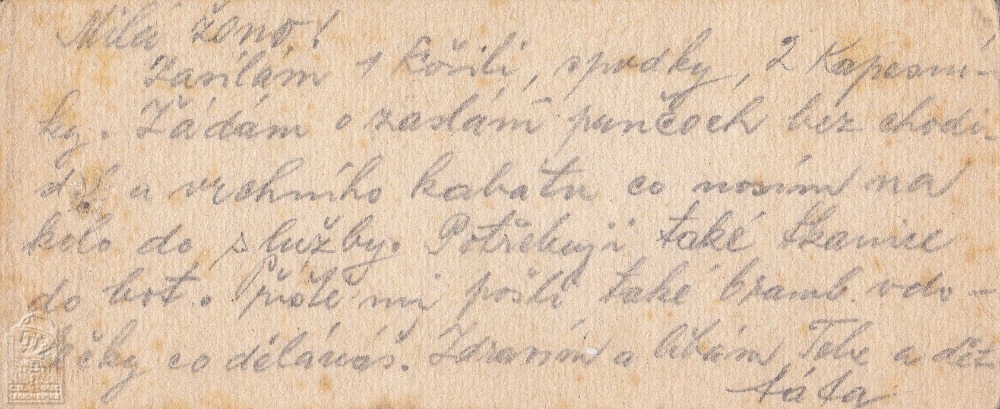 Milá ženo!
Zasílám 1 košili, spodky, 2 kapesní-
ky. Žádám o zaslání punčoch bez chodi-
del a vrchního kabátu co nosím na
kolo do služby. Potřebuji také tkanice
do bot. Příště mi pošli také bramb. vdo-
lečky co děláváš. Zdravím a líbám Tebe a děti
táta